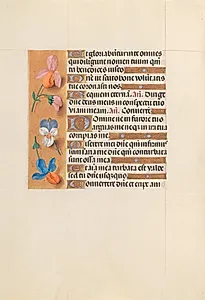 Et gloriabuntur in te omnes
qui diligunt nomen tuum qm̄
tu benedices iusto
Dn̄e ut scuto bone volunta
tis coronasti nos
Requiem eternā. Añ. Dirige
dn̄e deus meus in conspectu tuo
viam meā. Añ.
Domine ne in furore tuo
arguas me neqz in ira tua
corripias me
Miserere mei dn̄e qm̄ infirmꝰ
sum sana me dn̄e qm̄ conturbata
sunt ossa mea
Et aīa mea turbata est valde
sed tu dn̄e usquequo
Convertere dn̄e et eripe aīam